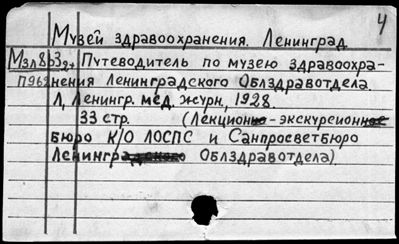 4
Музей здравоохранения. Ленинград.
Мзл8 Путеводитель по музею здравоохра-
П96 нения Ленинградского Облздравотдела.
Л, Ленингр. мед. журн, 1928.
33 стр. (Лекцион - экскурсион
бюро К/О ЛОСПС и Санпросветбюро
Ленингр Облздравотдела)